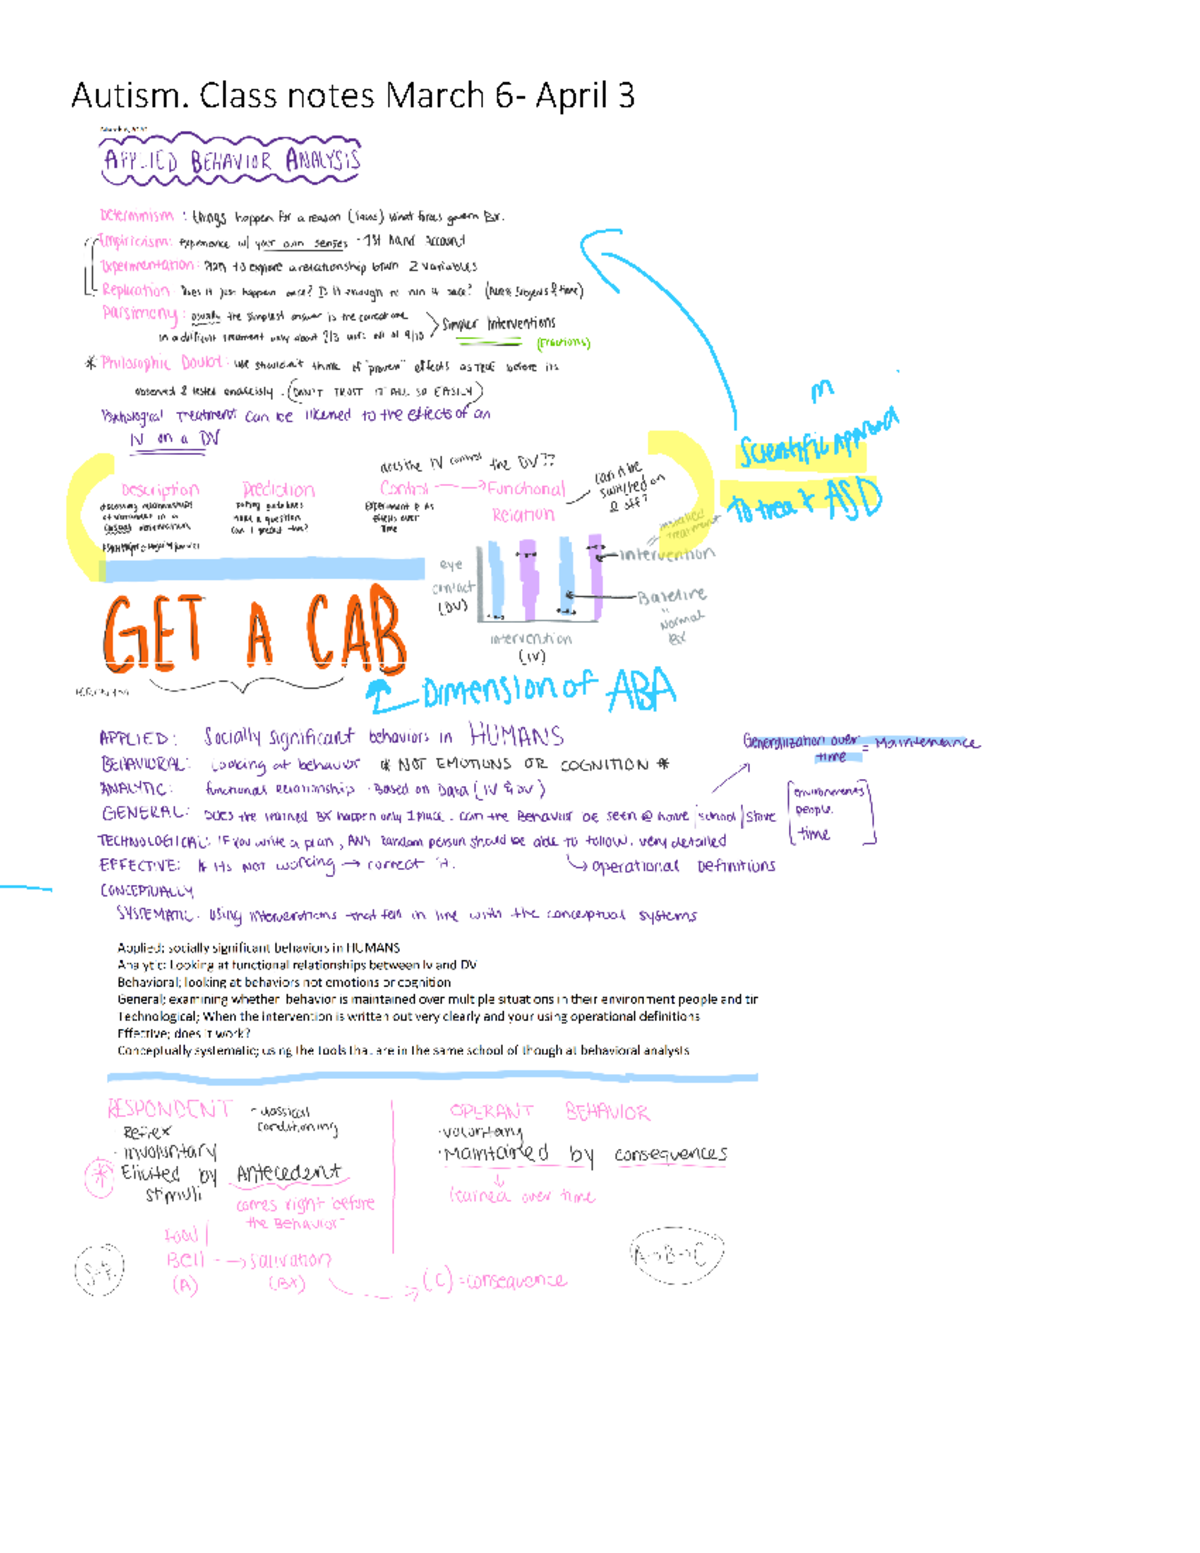 Autism. Class notes March 6- April 3
APPLIED BEHAVIOR ANALYSIS
Determinism: things happen for a reason (laws) what forces govern Bx.
Empiricism: experience w/ your own senses · 1st hand account
Experimentation: to explore a relationship btwn 2 variables
Replication Does it just happen once? Is it enough to run it once?
Parsimony: usually the simplest answer is the correct one
in a difficult treatment only about
Simpler Interventions
* Philosophic Doubt: we shouldn't think of "proven" effects as TRUE before its
observed & tested endlessly. (DON'T TRUST IT ALL SO EASILY)
Psychological Treatment can be likened to the effects of an
IV on a DV
Scientific Approach
To treat ASD
does the IV control the DV??
Description
Prediction
Control → Functional
Relation
can it be
switched on
& off?
discovering relationships
of variables in a
(casual) observation
take a question
can I predict this?
Experiment & its
effects over
time
installed
treatment
Intervention
Baseline
=
Normal
Bx
eye
contact
(DV)
intervention
(IV)
GET A CAB
Dimension of ABA
APPLIED: Socially significant behaviors in HUMANS
BEHAVIORAL: Looking at behavior * NOT EMOTIONS OR COGNITION *
ANALYTIC: functional relationship · Based on Data (IV & DV)
GENERAL: Does the trained BX happen only 1 place. can the Behavior be seen @ home/school/store
Generalization over time = Maintenance
environments
people.
time
TECHNOLOGICAL: IF you write a plan, ANY random person should be able to follow. very detailed
operational Definitions
EFFECTIVE: If its NOT working → correct it.
CONCEPTUALLY
SYSTEMATIC. Using interventions that fall in line with the conceptual systems
Applied; socially significant behaviors in HUMANS
Analytic: Looking at functional relationships between Iv and DV
Behavioral; looking at behaviors not emotions or cognition
General; examining whether behavior is maintained over multiple situations in their environment people and tir
Technological; When the intervention is written out very clearly and your using operational definitions
Effective; does it work?
Conceptually systematic; using the tools that are in the same school of though at behavioral analysts
RESPONDENT - classical conditioning
Reflex
· involuntary
* Elicited by Antecedent
stimuli
comes right before
the Behavior
food/
Bell → salivation
(A) (Bx)
S-R
OPERANT BEHAVIOR
· voluntary
· Maintained by consequences
↓
learned over time
(C) = consequence
A→B→C